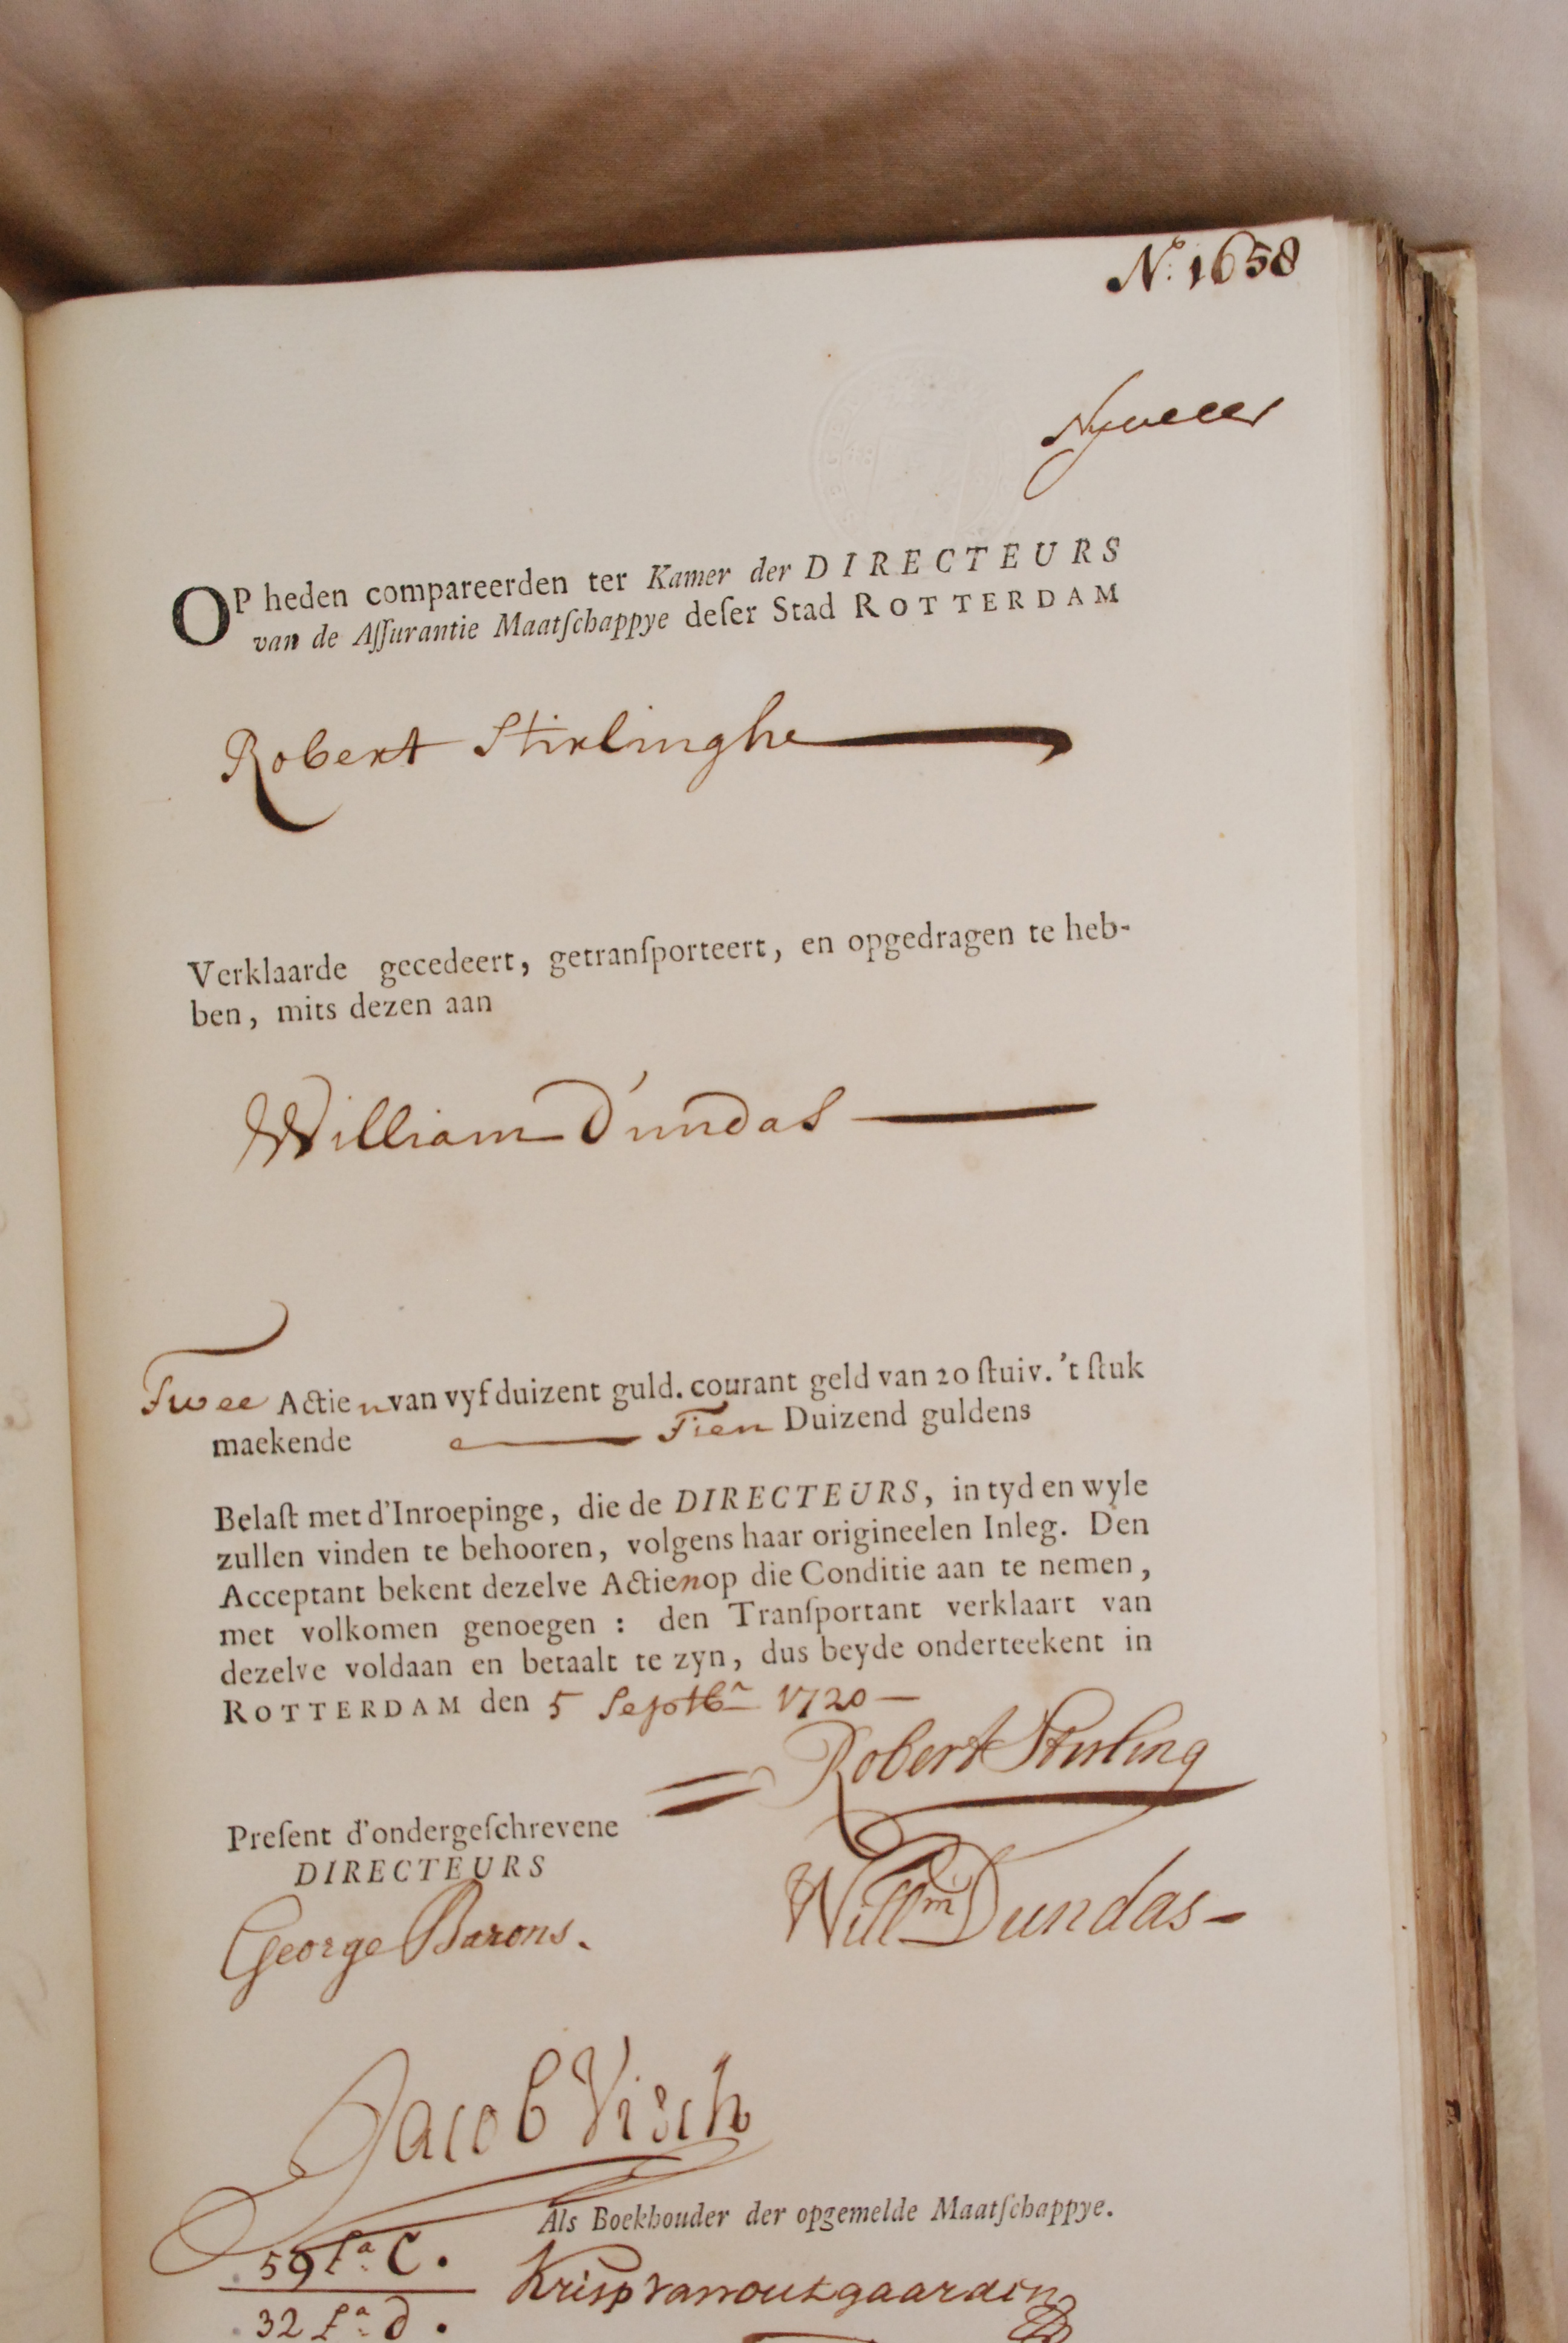 No. 1658
OP heden compareerden ter Kamer der DIRECTEURS
van de Aſſurantie Maatſchappye deſer Stad ROTTERDAM
Robert Stirlinghe
Verklaarde gecedeert, getranſporteert, en opgedragen te heb-
ben, mits dezen aan
William Dundas
Twee Actien van vyf duizent guld. courant geld van 20 ſtuiv. 't ſtuk
maekende Tien Duizend guldens
Belaſt met d'Inroepinge, die de DIRECTEURS, in tyd en wyle
zullen vinden te behooren, volgens haar origineelen Inleg. Den
Acceptant bekent dezelve Actien op die Conditie aan te nemen,
met volkomen genoegen: den Tranſportant verklaart van
dezelve voldaan en betaalt te zyn, dus beyde onderteekent in
ROTTERDAM den 5 Septbr 1720
Robert Stirling
Preſent d'ondergeſchrevene
DIRECTEURS
Willm Dundas
George Barons.
Jacob Visch
Als Boekhouder der opgemelde Maatſchappye.
59 La C.
32 La D.